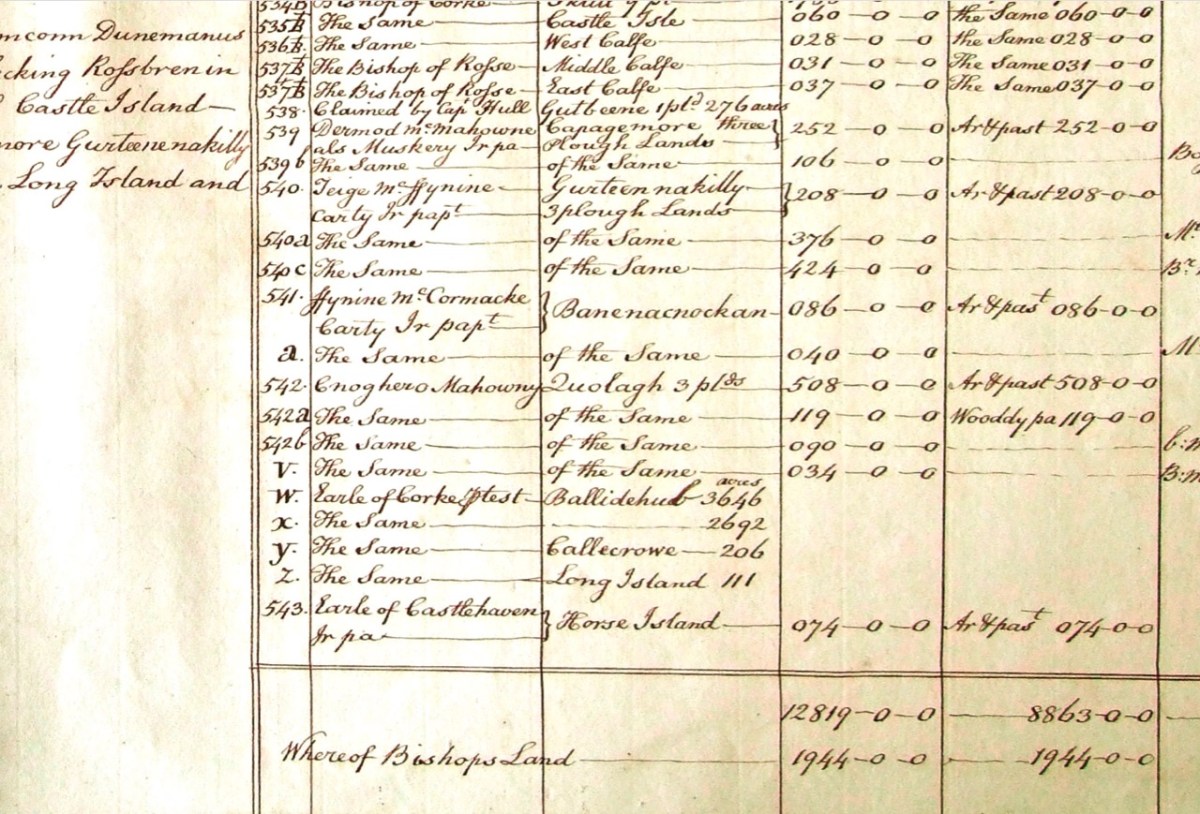 534B Bishop of Corke
535B The Same Castle Isle 060-0-0 the Same 060-0-0
mconn Dunemanus
536B. The Same West Calfe 028-0-0 the Same 028-0-0
cking Rossbren in 537B The Bishop of Rosse Middle Calfe 031-0-0 The Same 031-0-0
537B The Bishop of Rosse East Calfe 037-0-0 The Same 037-0-0
Castle Island
538. Claimed by Cap Hull Gutbeene 1 pld 276 acres
539 Dermod mcMahowne Capagemore three 252-0-0 Ar & past 252-0-0
nore Gurteenenakilly als Muskery Ir pa plough Lands
539b The Same of the Same 106-0-0
Long Island and 540. Teige Mc ffynine Gurteennakilly 208-0-0 Ar & past 208-0-0
Carty Ir papt 3 plough Lands
540a The Same of the Same 376-0-0 Mr
540c The Same of the Same 424-0-0 Br
541. ffynine McCormacke Banenacnockan 086-0-0 Ar & past 086-0-0
Carty Ir papt
a. The Same of the Same 040-0-0 M
542. Cnoghero Mahowny Quolagh 3 plds 508-0-0 Ar & past 508-0-0
542a The Same of the Same 119-0-0 Wooddy pa 119-0-0
542b The Same of the Same 090-0-0
V. The Same of the Same 034-0-0
W. Earle of Corke ptest Ballidehub acres 3646
x. The Same 2692
y. The Same Callecrowe 206
Z. The Same Long Island 111
543. Earle of Castlehaven Horse Island 074-0-0 Ar & past 074-0-0
Ir pa
12819-0-0 8863-0-0
Whereof Bishops Land 1944-0-0 1944-0-0